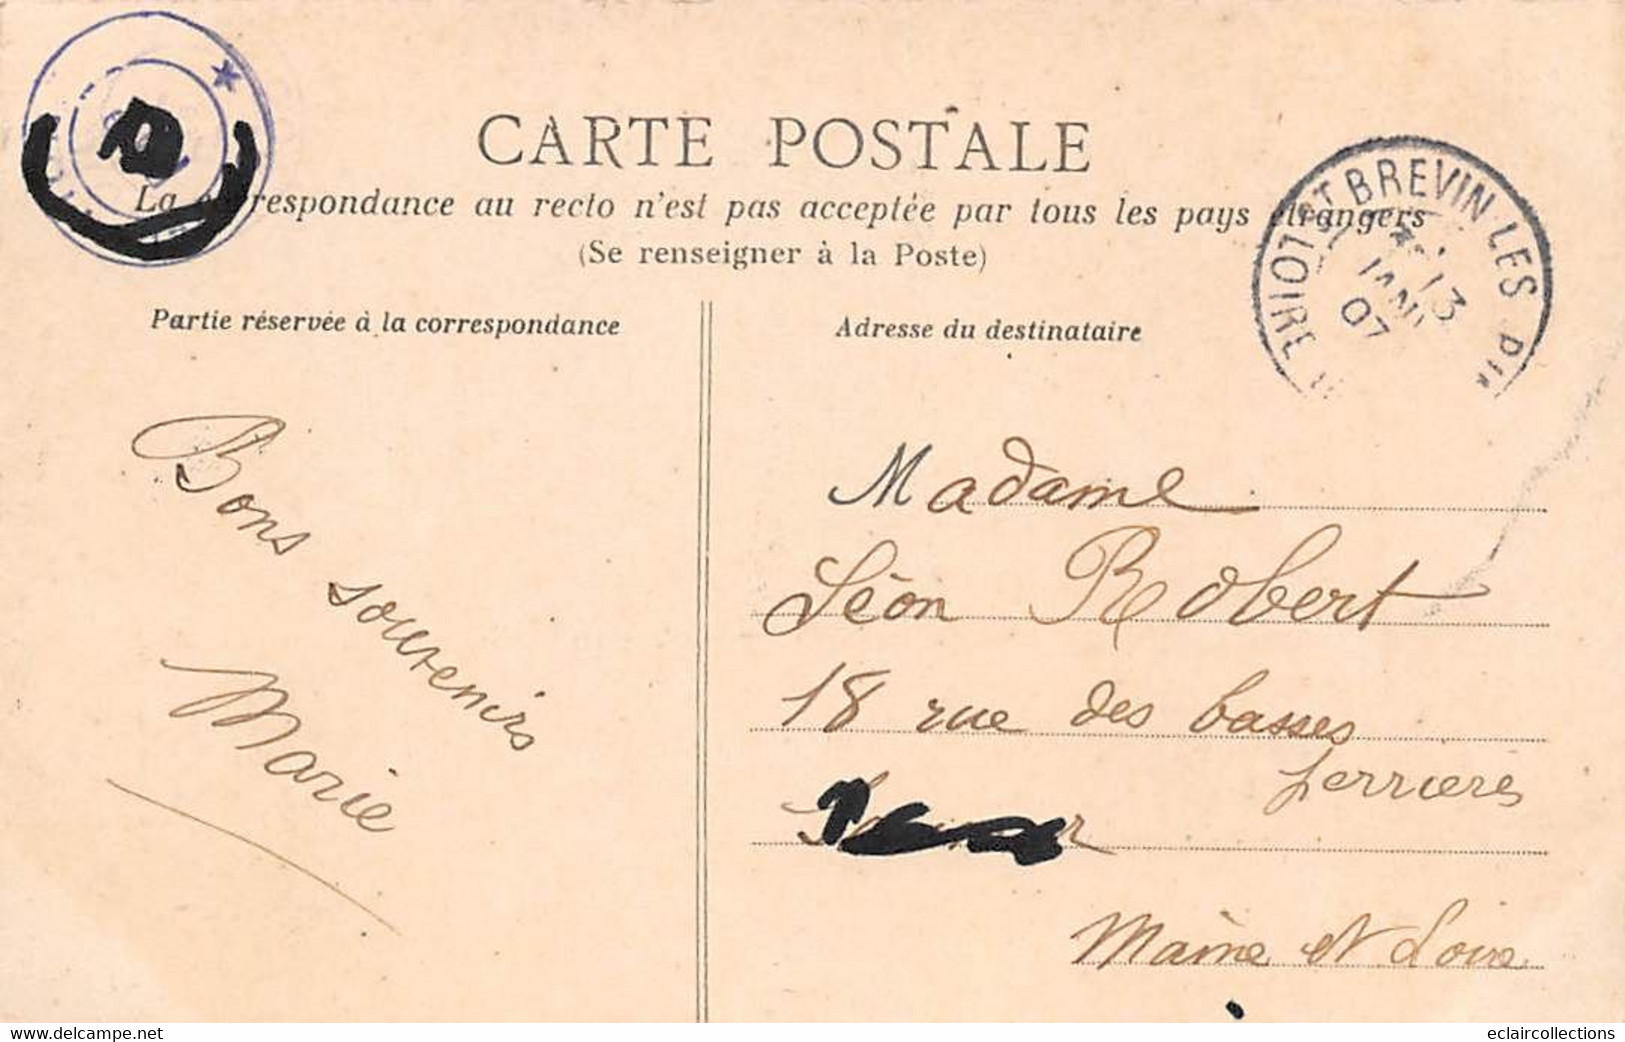 CARTE POSTALE
La correspondance au recto n'est pas acceptée par tous les pays étrangers
(Se renseigner à la Poste)
ST BREVIN-LES
13
07
Partie réservée à la correspondance
Adresse du destinataire
Bons souvenirs
Marie
Madame
Léon Robert
18 rue des basses
perrieres
Maine et Loire
www.delcampe.net
eclaircollections